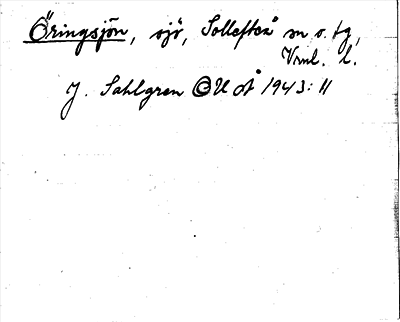 Öringsjön, sjö, Sollefteå sn o. tg,
Vrnl. l.
J. Sahlgren OUoÅ 1943: 11